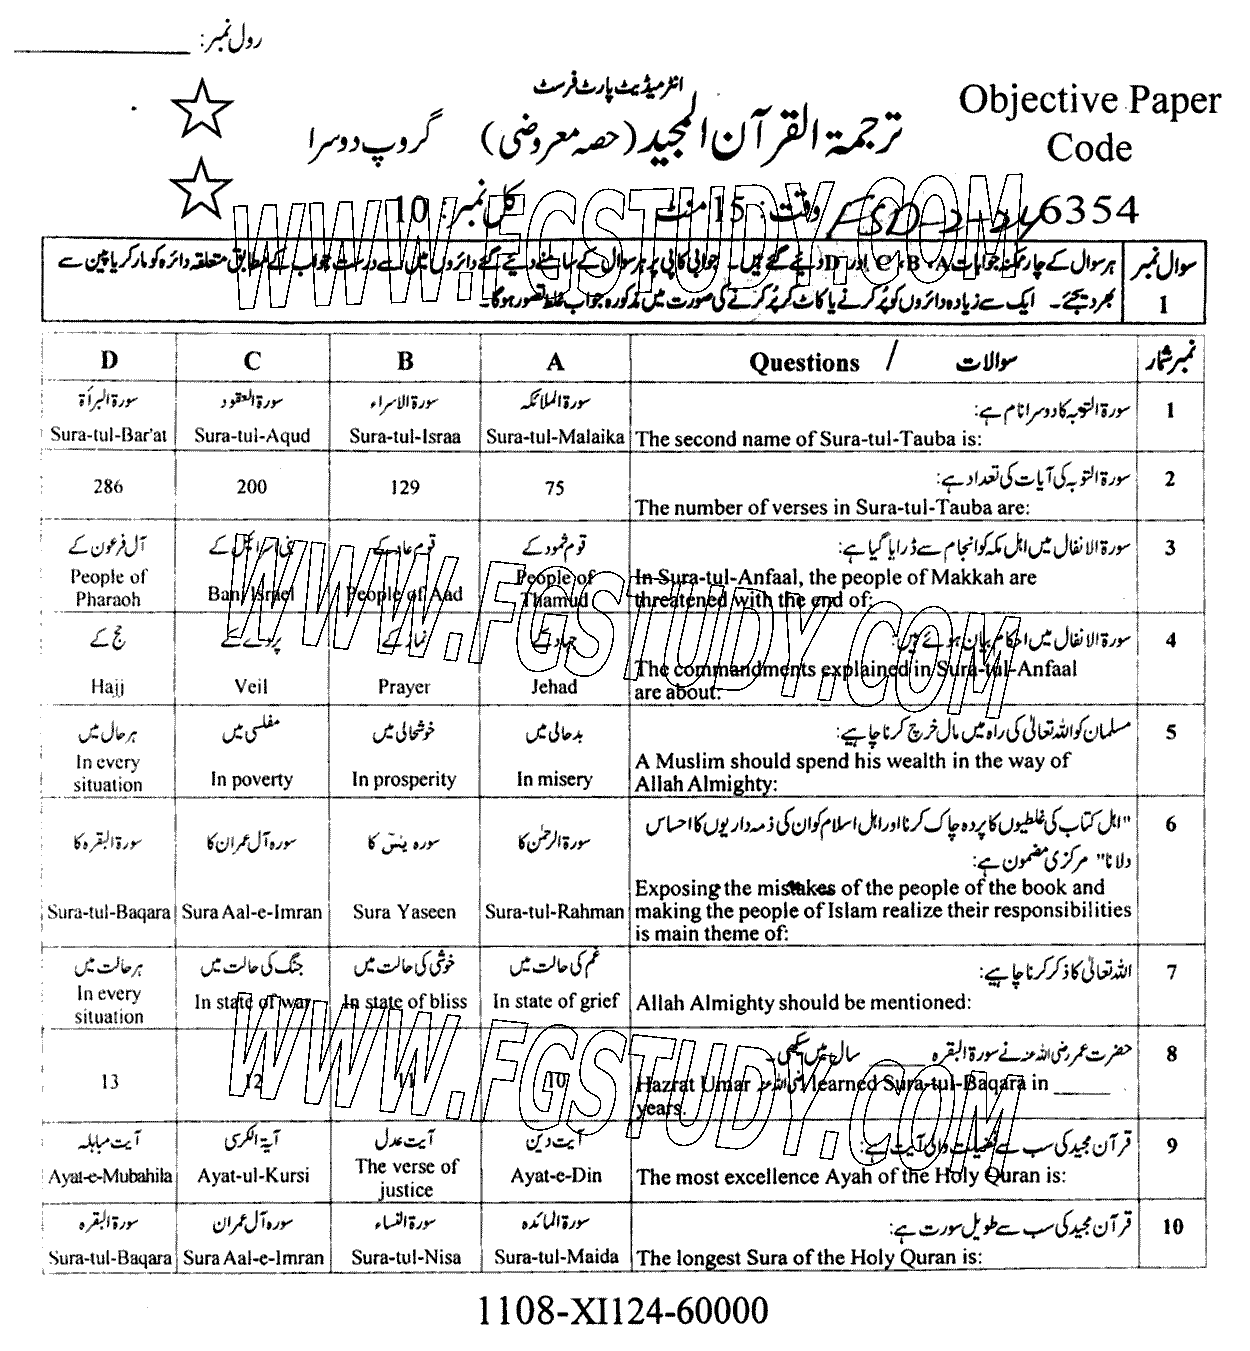 رول نمبر: ____________
انٹرمیڈیٹ پارٹ فرسٹ
Objective Paper
Code
6354
ترجمۃ القرآن المجید (حصہ معروضی) گروپ دوسرا
وقت: 15 منٹ
کل نمبر: 10
FSD-2-24
WWW.FGSTUDY.COM
سوال نمبر 1
ہر سوال کے چار ممکنہ جوابات A، B، C اور D دیئے گئے ہیں۔ جوابی کاپی پر ہر سوال کے سامنے دیئے گئے دائروں میں سے درست جواب کے مطابق متعلقہ دائرہ کو مارکر یا پین سے
بھر دیجئے۔ ایک سے زیادہ دائروں کو پُر کرنے یا کاٹ کر پُر کرنے کی صورت میں مذکورہ جواب غلط تصور ہوگا۔
نمبر شمار سوالات / Questions A B C D
1 سورۃ التوبہ کا دوسرا نام ہے: سورۃ الملائکہ سورۃ الاسراء سورۃ العقود سورۃ البرأۃ
The second name of Sura-tul-Tauba is: Sura-tul-Malaika Sura-tul-Israa Sura-tul-Aqud Sura-tul-Bar'at
2 سورۃ التوبہ کی آیات کی تعداد ہے: 75 129 200 286
The number of verses in Sura-tul-Tauba are:
3 سورۃ الانفال میں اہل مکہ کو انجام سے ڈرایا گیا ہے: قوم ثمود کے قوم عاد کے بنی اسرائیل کے آل فرعون کے
In Sura-tul-Anfaal, the people of Makkah are People of People of Aad Bani Israel People of
threatened with the end of: Thamud Pharaoh
4 سورۃ الانفال میں احکام بیان ہوئے ہیں: جہاد کے نماز کے پردے کے حج کے
The commandments explained in Sura-tul-Anfaal Jehad Prayer Veil Hajj
are about:
5 مسلمان کو اللہ تعالیٰ کی راہ میں مال خرچ کرنا چاہیے: بدحالی میں خوشحالی میں مفلسی میں ہر حال میں
A Muslim should spend his wealth in the way of In misery In prosperity In poverty In every
Allah Almighty: situation
6 "اہل کتاب کی غلطیوں کا پردہ چاک کرنا اور اہل اسلام کو ان کی ذمہ داریوں کا احساس سورۃ الرحمٰن کا سورہ یٰسٓ کا سورہ آل عمران کا سورۃ البقرہ کا
دلانا" مرکزی مضمون ہے:
Exposing the mistakes of the people of the book and
making the people of Islam realize their responsibilities Sura-tul-Rahman Sura Yaseen Sura Aal-e-Imran Sura-tul-Baqara
is main theme of:
7 اللہ تعالیٰ کا ذکر کرنا چاہیے: غم کی حالت میں خوشی کی حالت میں جنگ کی حالت میں ہر حالت میں
Allah Almighty should be mentioned: In state of grief In state of bliss In state of war In every
situation
8 حضرت عمر رضی اللہ عنہ نے سورۃ البقرہ ______ سال میں سیکھی۔ 10 11 12 13
Hazrat Umar رضی اللہ عنہ learned Sura-tul-Baqara in ______
years.
9 قرآن مجید کی سب سے فضیلت والی آیت ہے: آیت دین آیت عدل آیۃ الکرسی آیت مباہلہ
The most excellence Ayah of the Holy Quran is: Ayat-e-Din The verse of Ayat-ul-Kursi Ayat-e-Mubahila
justice
10 قرآن مجید کی سب سے طویل سورت ہے: سورۃ المائدہ سورۃ النساء سورہ آل عمران سورۃ البقرہ
The longest Sura of the Holy Quran is: Sura-tul-Maida Sura-tul-Nisa Sura Aal-e-Imran Sura-tul-Baqara
WWW.FGSTUDY.COM
WWW.FGSTUDY.COM
1108-XI124-60000